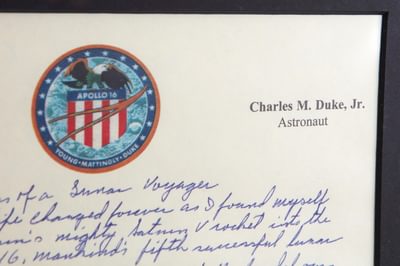 APOLLO 16
YOUNG • MATTINGLY • DUKE
Charles M. Duke, Jr.
Astronaut
of a Lunar Voyager
changed forever as I found myself
mighty Saturn V rocket into the
16, mankind's fifth successful lunar